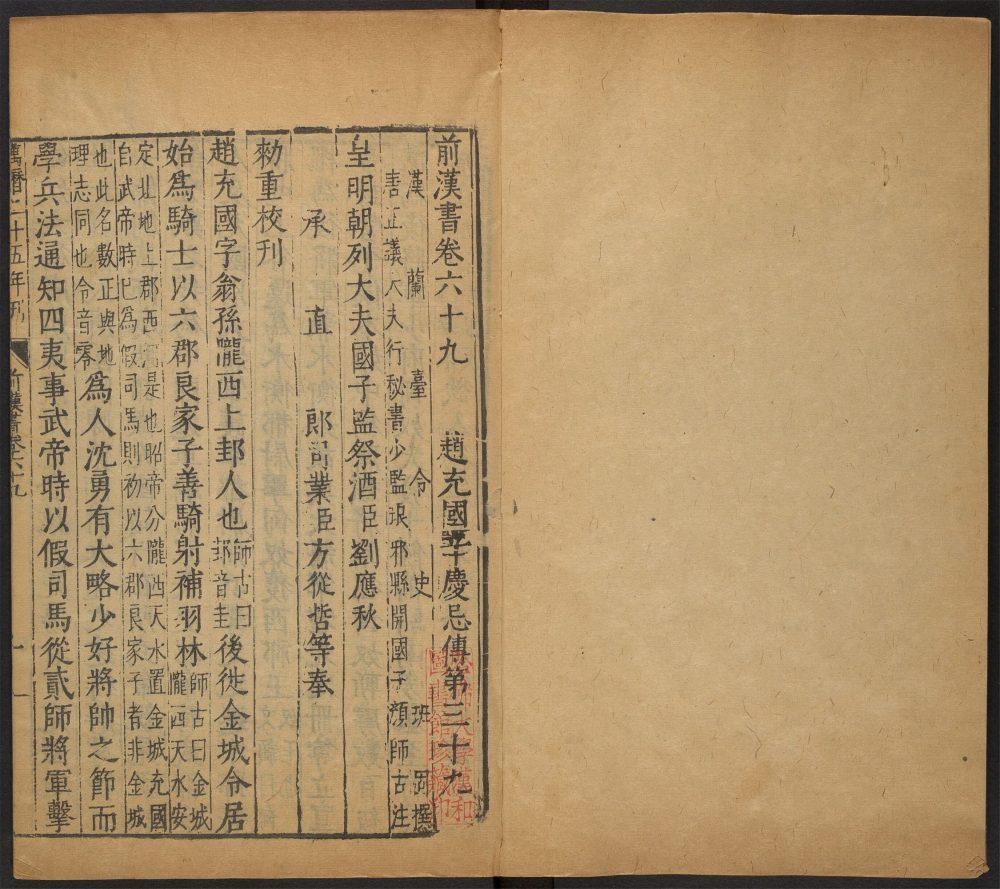 前漢書卷六十九 趙充國辛慶忌傳第三十九
漢 蘭 臺 令 史 班 固 撰
唐正議大夫行秘書少監琅邪縣開國子顏師古注
皇明朝列大夫國子監祭酒臣劉應秋
承 直 郎司業臣方從哲等奉
勑重校刊
趙充國字翁孫隴西上邽人也師古曰邽音圭後徙金城令居
始爲騎士以六郡良家子善騎射補羽林師古曰金城隴西天水安
定北地上郡西河是也昭帝分隴西天水置金城充國
自武帝時已爲假司馬則初以六郡良家子者非金城
也此名數正與地
理志同也令音零爲人沈勇有大略少好將帥之節而
學兵法通知四夷事武帝時以假司馬從貳師將軍擊
萬曆二十五年刊 前漢書卷六十九 一